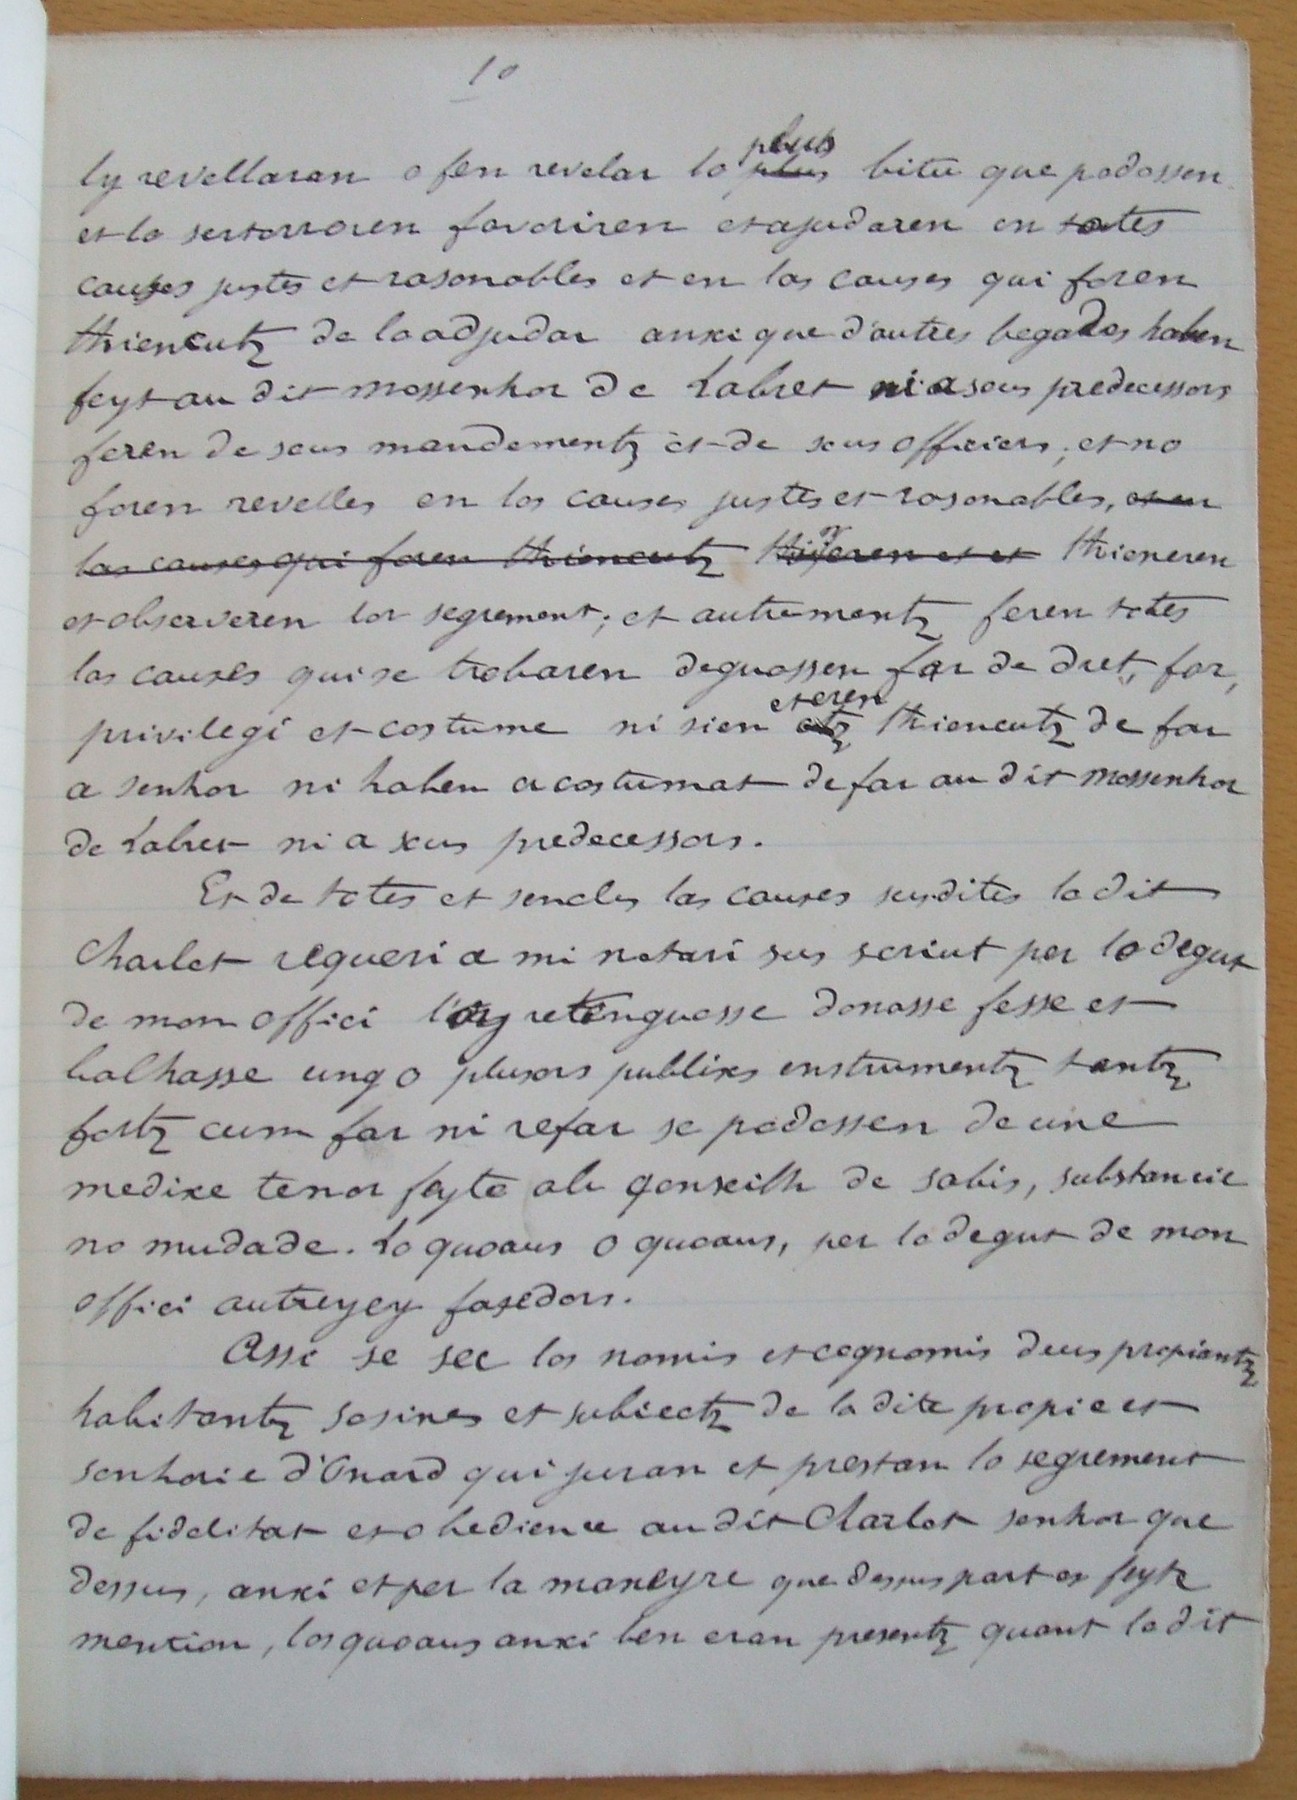 10
ly revellaran o fen revelar lo plus bitu que podossen
et lo sertorroren favoriren et ajudaren en totes
causes justes et rasonables et en las causes qui foren
thiencutz de lo adjudar anxi que d'autres begades haben
feyt au dit mossenhor de Labret ni a sous predecessors
feren de sous mandementz et de sous officiers, et no
foren revelles en las causes justes et rasonables, et en
las causes qui foren thiencutz et et thieneren
et observeren lor segrement; et autrementz feren totes
las causes qui se trobaren deguossen far de dret, for,
privilegi et costume ni sien eteren thiencutz de far
a senhor ni haben acostumat de far au dit mossenhor
de Labret ni a sous predecessors.
Et de totes et sencles las causes susdites lo dit
Charlot requeri a mi notari sus scriut per lo degut
de mon offici l'ag retenguosse donasse fesse et
balhasse ung o plusors publixs enstrumentz tantz
fortz cum far ni refar se podossen de une
medixe tenor feyte ab qonseilh de sabis, substancie
no mudade. Lo quoaus o quoaus, per lo degut de mon
offici autreyey fasedors.
Assi se sec los nomis et cognomis deus propiantz
habitantz sosines et subiectz de la dite propie et
senhorie d'Onard qui juran et prestan lo segrement
de fidelitat et obedience au dit Charlot senhor que
dessus, anxi et per la maneyre que dessus part es feyte
mention, los quoaus anxi ben eran presentz quant lo dit